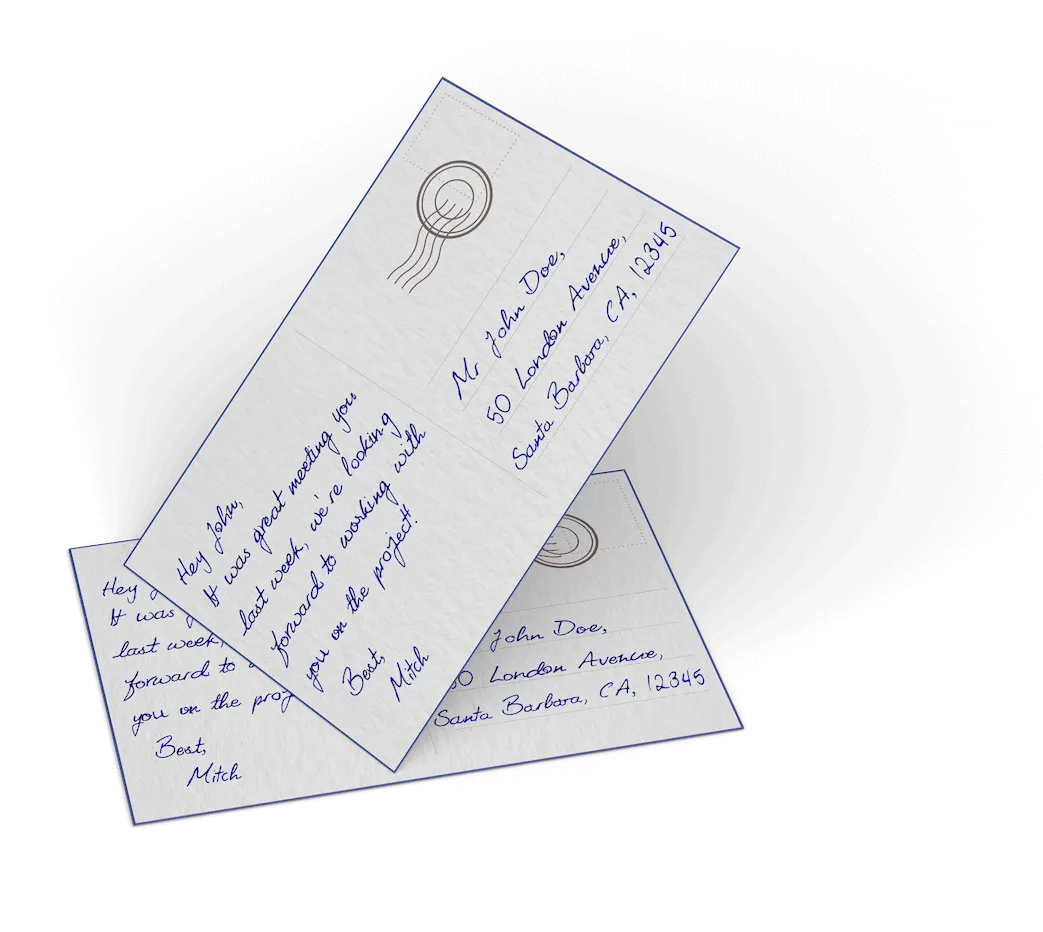 Hey John,
It was great meeting you
last week, we're looking
forward to working with
you on the project!
Best,
Mitch
Mr John Doe,
50 London Avenue,
Santa Barbara, CA, 12345
Hey
It was
last week,
forward to
you on the
Best,
Mitch
John Doe,
London Avenue,
Santa Barbara, CA, 12345